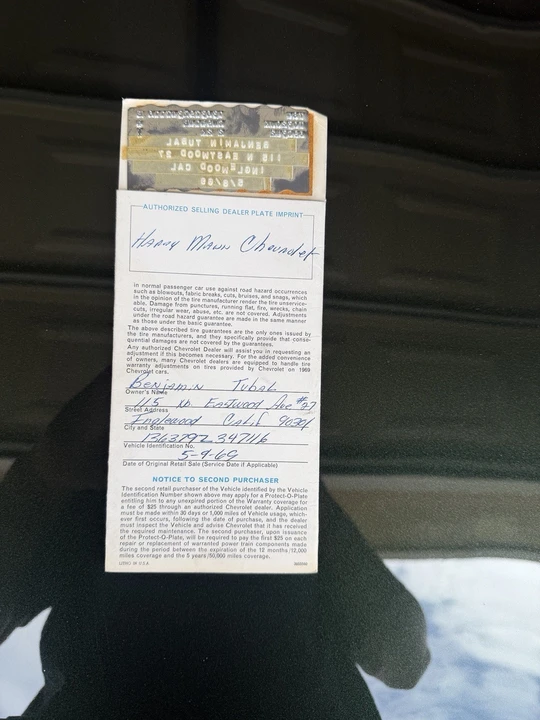 BENJAMIN TUBAL
INGLEWOOD CAL
AUTHORIZED SELLING DEALER PLATE IMPRINT
HARRY MANN Chevrolet
in normal passenger car use against road hazard occurrences
such as blowouts, fabric breaks, cuts, bruises, and snags, which
in the opinion of the tire manufacturer render the tire unservice-
able. Damage from punctures, running flat, fire, wrecks, chain
cuts, irregular wear, abuse, etc. are not covered. Adjustments
under the road hazard guarantee are made in the same manner
as those under the basic guarantee.
The above described tire guarantees are the only ones issued by
the tire manufacturers, and they specifically provide that conse-
quential damages are not covered by the guarantees.
Any authorized Chevrolet Dealer will assist you in requesting an
adjustment if this becomes necessary. For the added convenience
of owners, many Chevrolet dealers are equipped to handle tire
warranty adjustments on tires provided by Chevrolet on 1969
Chevrolet cars.
BENJAMIN TUBAL
Owner's Name
115 No EASTWOOD Ave #27
Street Address
Inglewood Calif 90301
City and State
136379Z 347116
Vehicle Identification No.
5-9-69
Date of Original Retail Sale (Service Date if Applicable)
NOTICE TO SECOND PURCHASER
The second retail purchaser of the Vehicle identified by the Vehicle
Identification Number shown above may apply for a Protect-O-Plate
entitling him to any unexpired portion of the Warranty coverage for
a fee of $25 through an authorized Chevrolet dealer. Application
must be made within 30 days or 1,000 miles of Vehicle usage, which-
ever first occurs, following the date of purchase, and the dealer
must inspect the Vehicle and advise Chevrolet that it has received
the required maintenance. The second purchaser, upon issuance
of the Protect-O-Plate, will be required to pay the first $25 on each
repair or replacement of warranted power train components made
during the period between the expiration of the 12 months/12,000
miles coverage and the 5 years/50,000 miles coverage.
LITHO IN U.S.A.